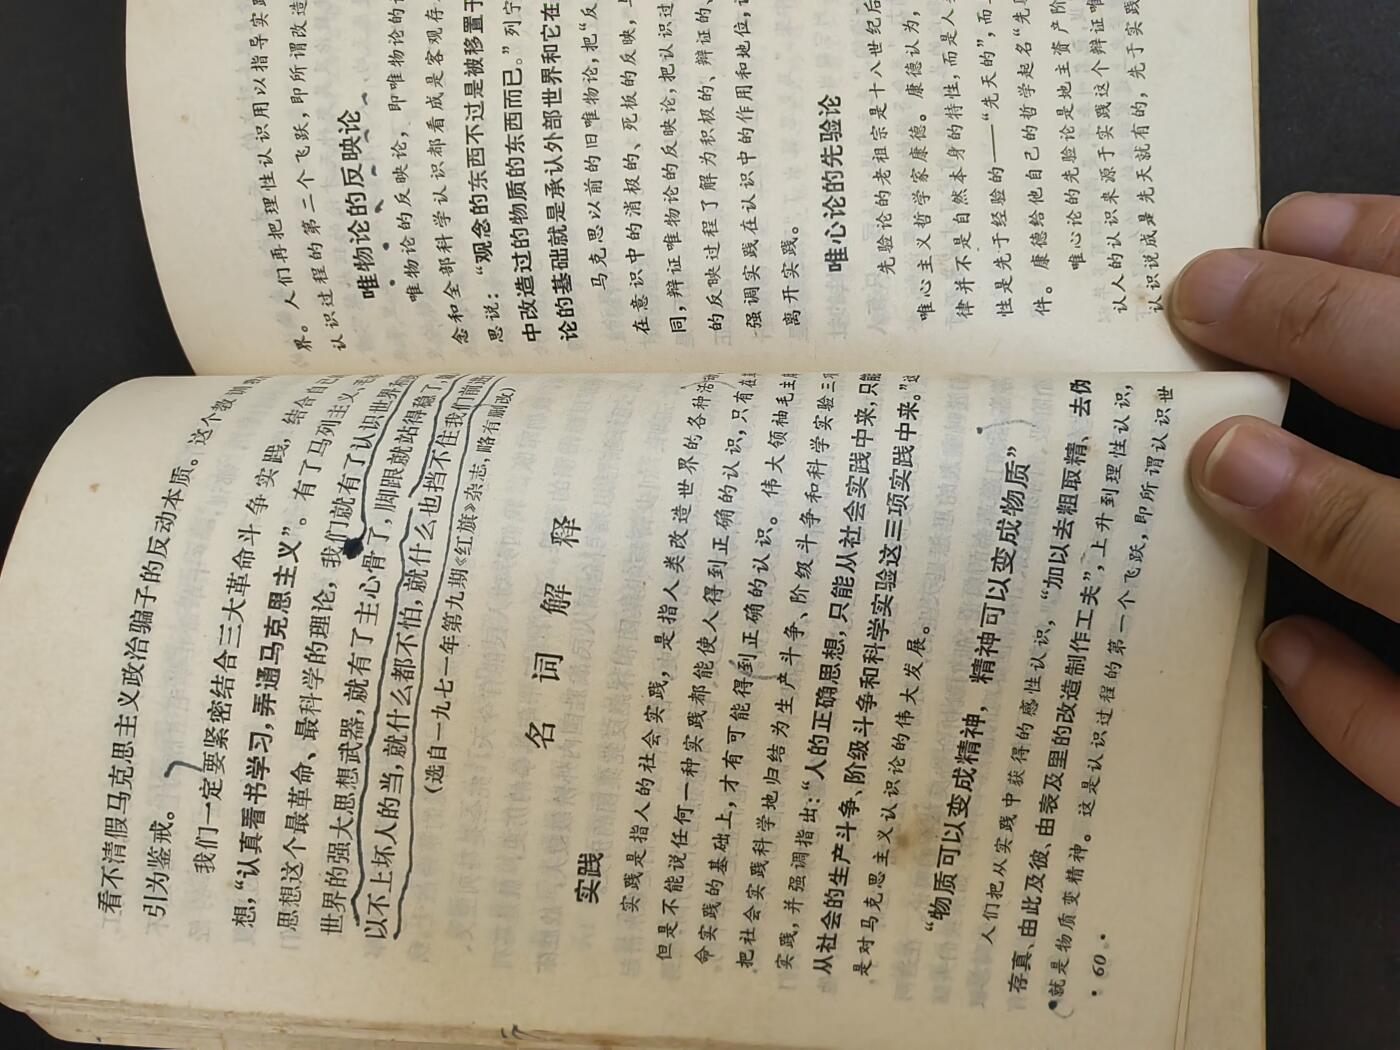 看不清假马克思主义政治骗子的反动本质。这个教训
引为鉴戒。
我们一定要紧密结合三大革命斗争实践，结合自己
想，“认真看书学习，弄通马克思主义”。有了马列主义、毛
思想这个最革命、最科学的理论，我们就有了认识世界和
世界的强大思想武器，就有了主心骨了，脚跟就站得稳了，
以不上坏人的当，就什么都不怕，就什么也挡不住我们前进
（选自一九七一年第九期《红旗》杂志，略有删改）
名词解释
实践
实践是指人的社会实践，是指人类改造世界的各种活动
但是不能说任何一种实践都能使人得到正确的认识，只有在
命实践的基础上，才有可能得到正确的认识。伟大领袖毛主
把社会实践科学地归结为生产斗争、阶级斗争和科学实验三项
实践，并强调指出：“人的正确思想，只能从社会实践中来，只能
从社会的生产斗争、阶级斗争和科学实验这三项实践中来。”这
是对马克思主义认识论的伟大发展。
“物质可以变成精神，精神可以变成物质”
人们把从实践中获得的感性认识，“加以去粗取精、去伪
存真、由此及彼、由表及里的改造制作工夫”，上升到理性认识，
就是物质变精神。这是认识过程的第一个飞跃，即所谓认识世
·60·
界。人们再把理性认识用以指导实践
认识过程的第二个飞跃，即所谓改造
唯物论的反映论
唯物论的反映论，即唯物论的
念和全部科学认识都看成是客观存
思说：“观念的东西不过是被移置于
中改造过的物质的东西而已。”列宁
论的基础就是承认外部世界和它在
马克思以前的旧唯物论，把“反
在意识中的消极的、死板的反映，
同，辩证唯物论的反映论，把认识过
的反映过程了解为积极的、辩证的、
强调实践在认识中的作用和地位，
离开实践。”
唯心论的先验论
先验论的老祖宗是十八世纪后
唯心主义哲学家康德。康德认为，
律并不是自然本身的特性，而是人
性是先于经验的——“先天的”，而
件。康德给他自己的哲学起名“先
唯心论的先验论是地主资产阶
认人的认识来源于实践这个辩证唯
认识说成是先天就有的，先于实践